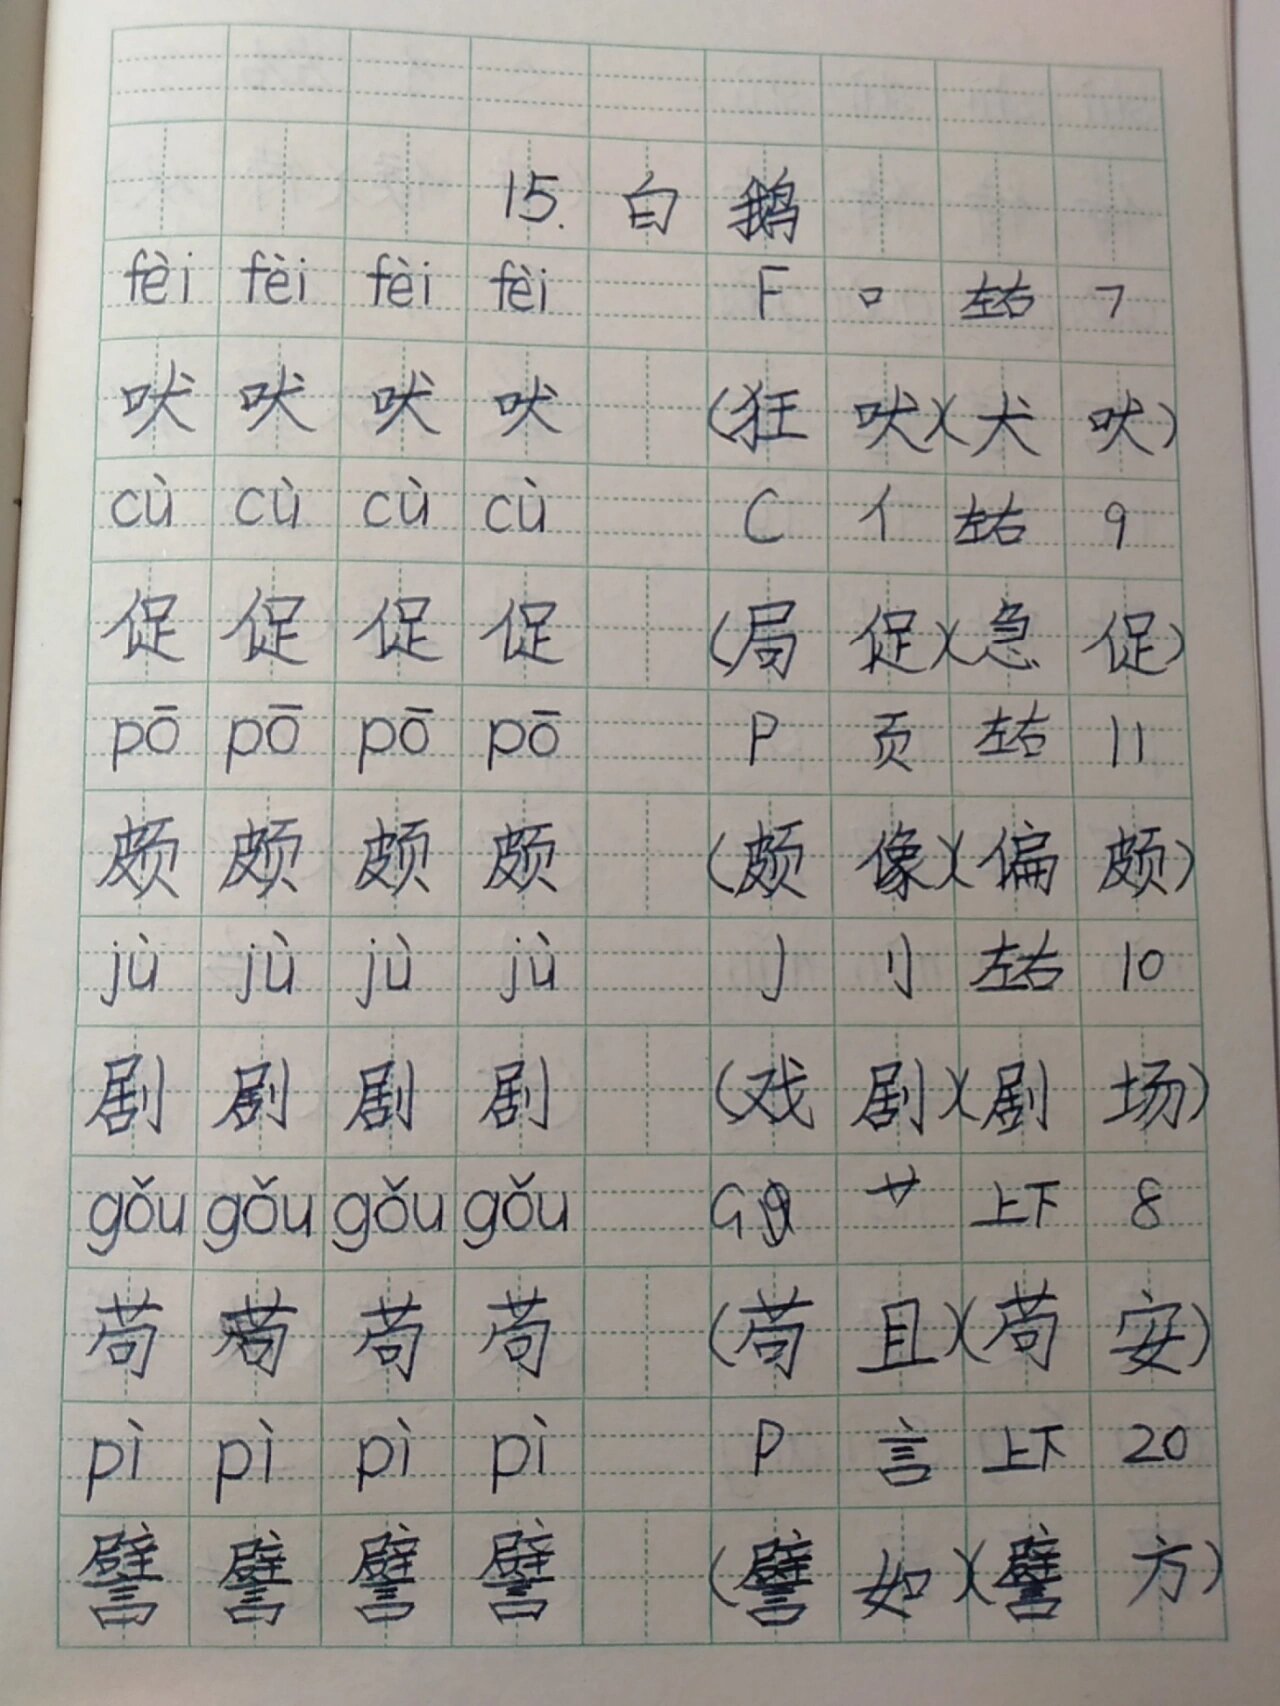 15. 白鹅
fèi fèi fèi fèi F 口 左右 7
吠 吠 吠 吠 (狂吠)(犬吠)
cù cù cù cù C 亻 左右 9
促 促 促 促 (局促)(急促)
pō pō pō pō P 页 左右 11
颇 颇 颇 颇 (颇像)(偏颇)
jù jù jù jù J 刂 左右 10
剧 剧 剧 剧 (戏剧)(剧场)
gǒu gǒu gǒu gǒu G 艹 上下 8
苟 苟 苟 苟 (苟且)(苟安)
pì pì pì pì P 言 上下 20
譬 譬 譬 譬 (譬如)(譬方)